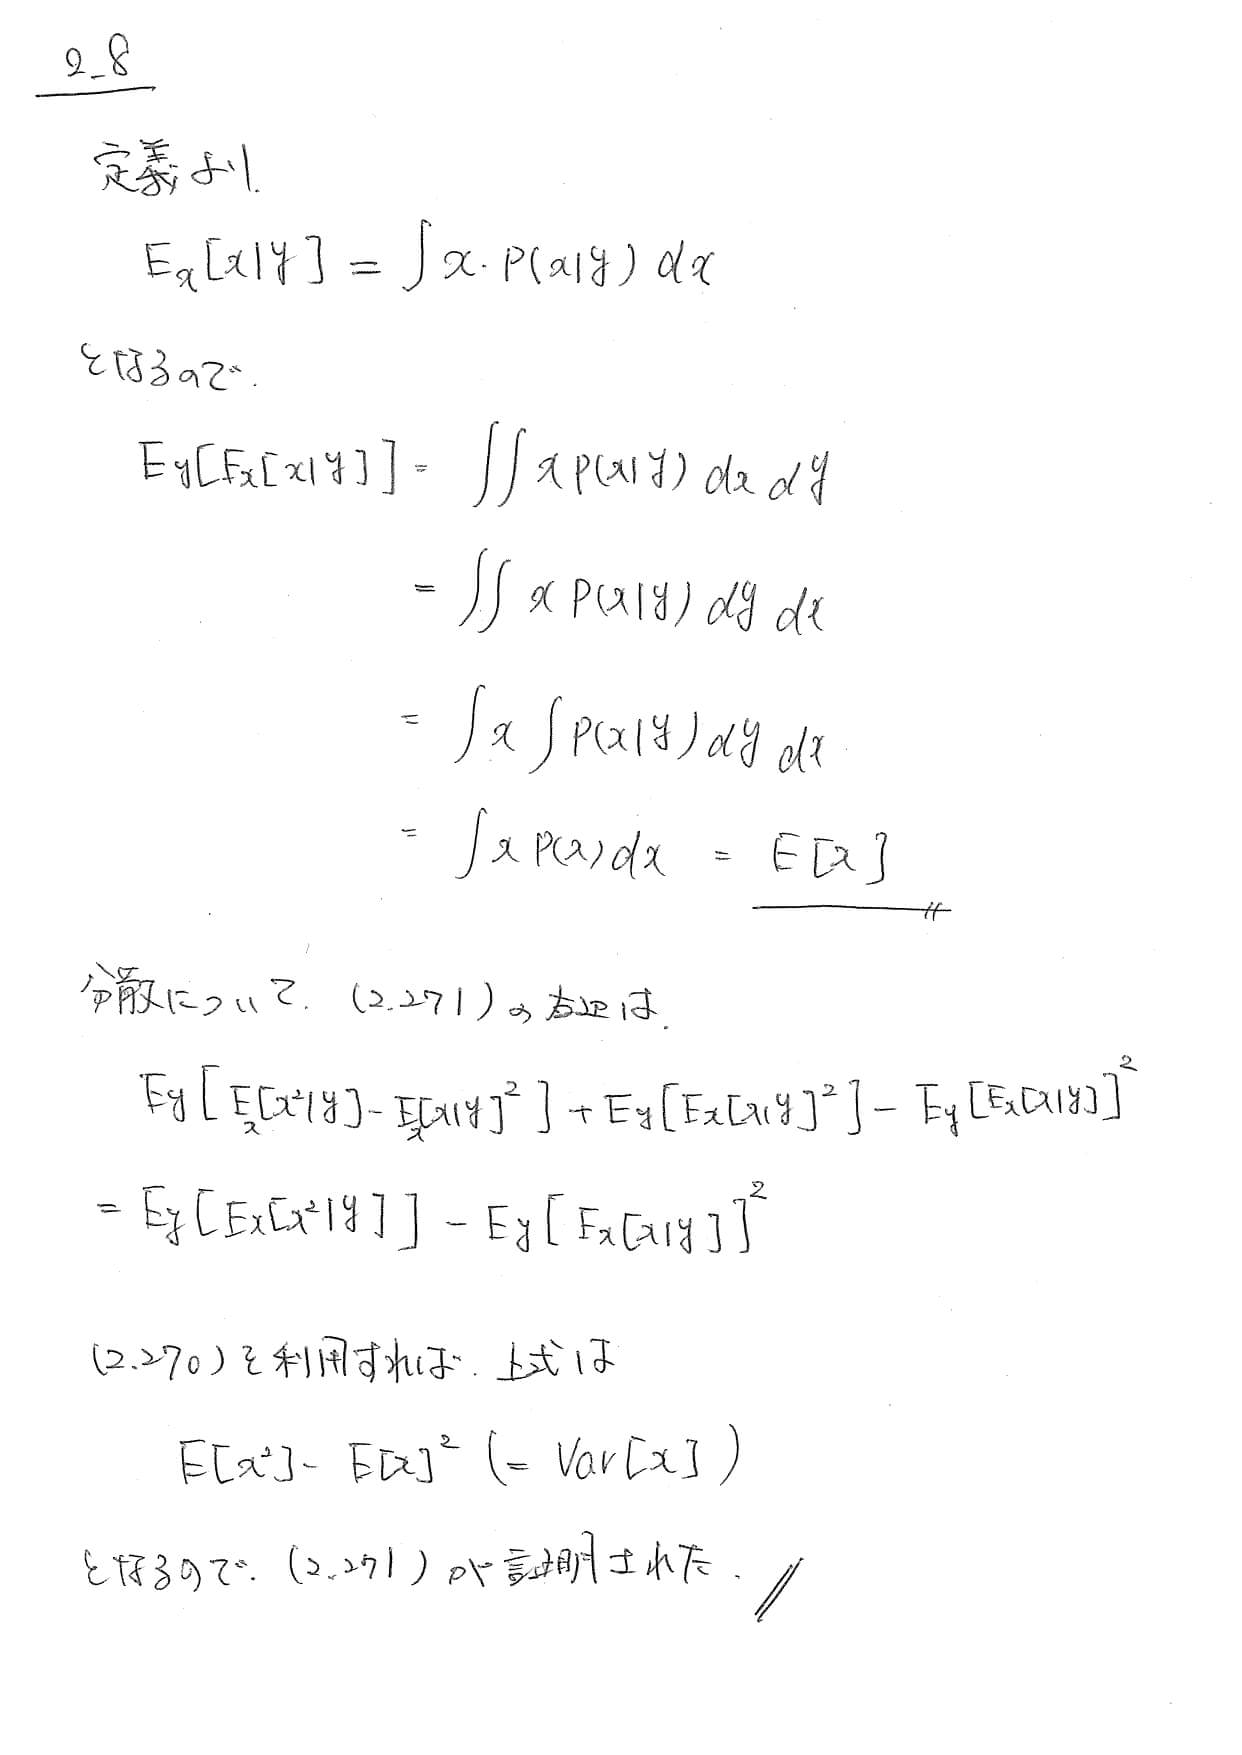 2_8
定義より.
E_x[x|y] = ∫x·p(x|y)dx
となるので.
E_y[E_x[x|y]] = ∬xp(x|y)dxdy
= ∬xp(x|y)dydx
= ∫x∫p(x|y)dydx
= ∫xp(x)dx = E[x]
分散について. (2.271)の右辺は.
E_y[E_x[x²|y]-E_x[x|y]²]+E_y[E_x[x|y]²]-E_y[E_x[x|y]]²
= E_y[E_x[x²|y]]-E_y[E_x[x|y]]²
(2.270)を利用すれば. 上式は
E[x²]-E[x]² (= Var[x])
となるので. (2.271)が証明された.